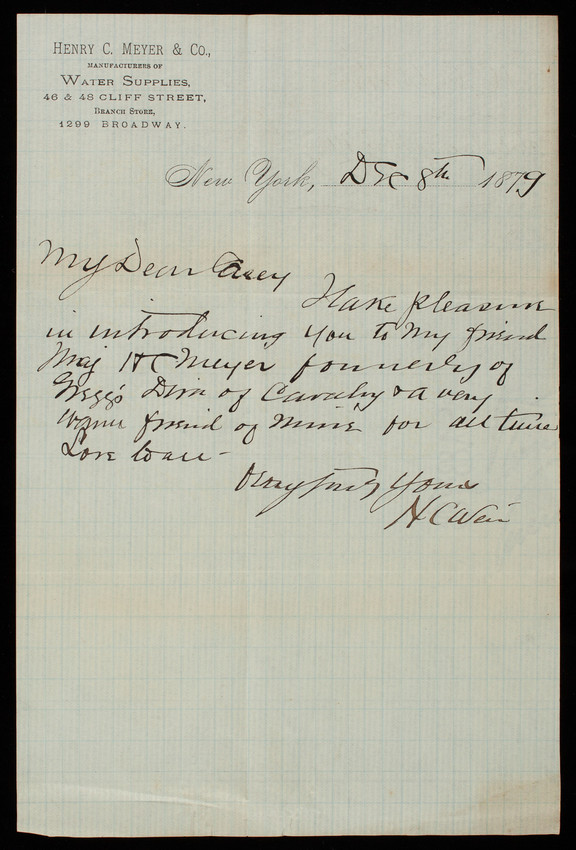 HENRY C. MEYER & CO.,
MANUFACTURERS OF
WATER SUPPLIES,
46 & 48 CLIFF STREET,
BRANCH STORE,
1299 BROADWAY.
New York, Dec 8th 1879
My Dear Casey
I take pleasure
in introducing you to my friend
Maj H C Meyer formerly of
Gregg's Divn of Cavalry & a very
warm friend of mine for all time
Love to all -
Very truly Yours
H C Weir